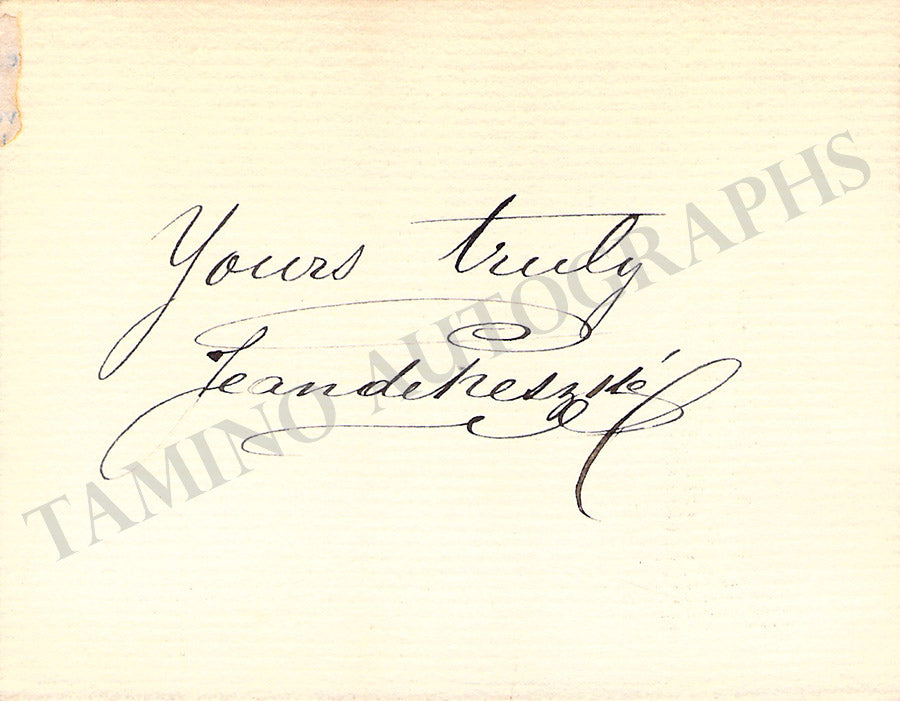 Yours truly
Jean de Reszké
TAMINO AUTOGRAPHS